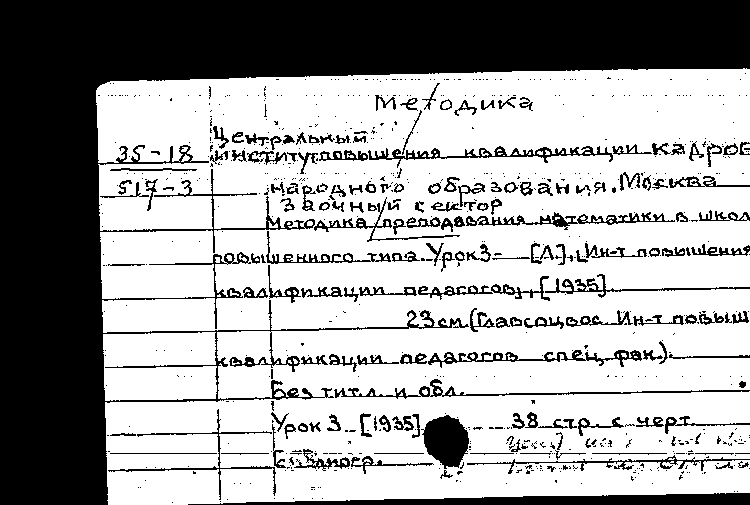 Методика
Центральный
35-18 Институт повышения квалификации кадров
517-3 народного образования. Москва
Заочный сектор
Методика преподавания математики в школ
повышенного типа. Урок 3- [Л.], Ин-т повышения
квалификации педагогов, [1935]
23 см. (Главсоцвос. Ин-т повыш
квалификации педагогов спец. фак.).
Без тит.л. и обл.
Урок 3. [1935] 38 стр. с черт.